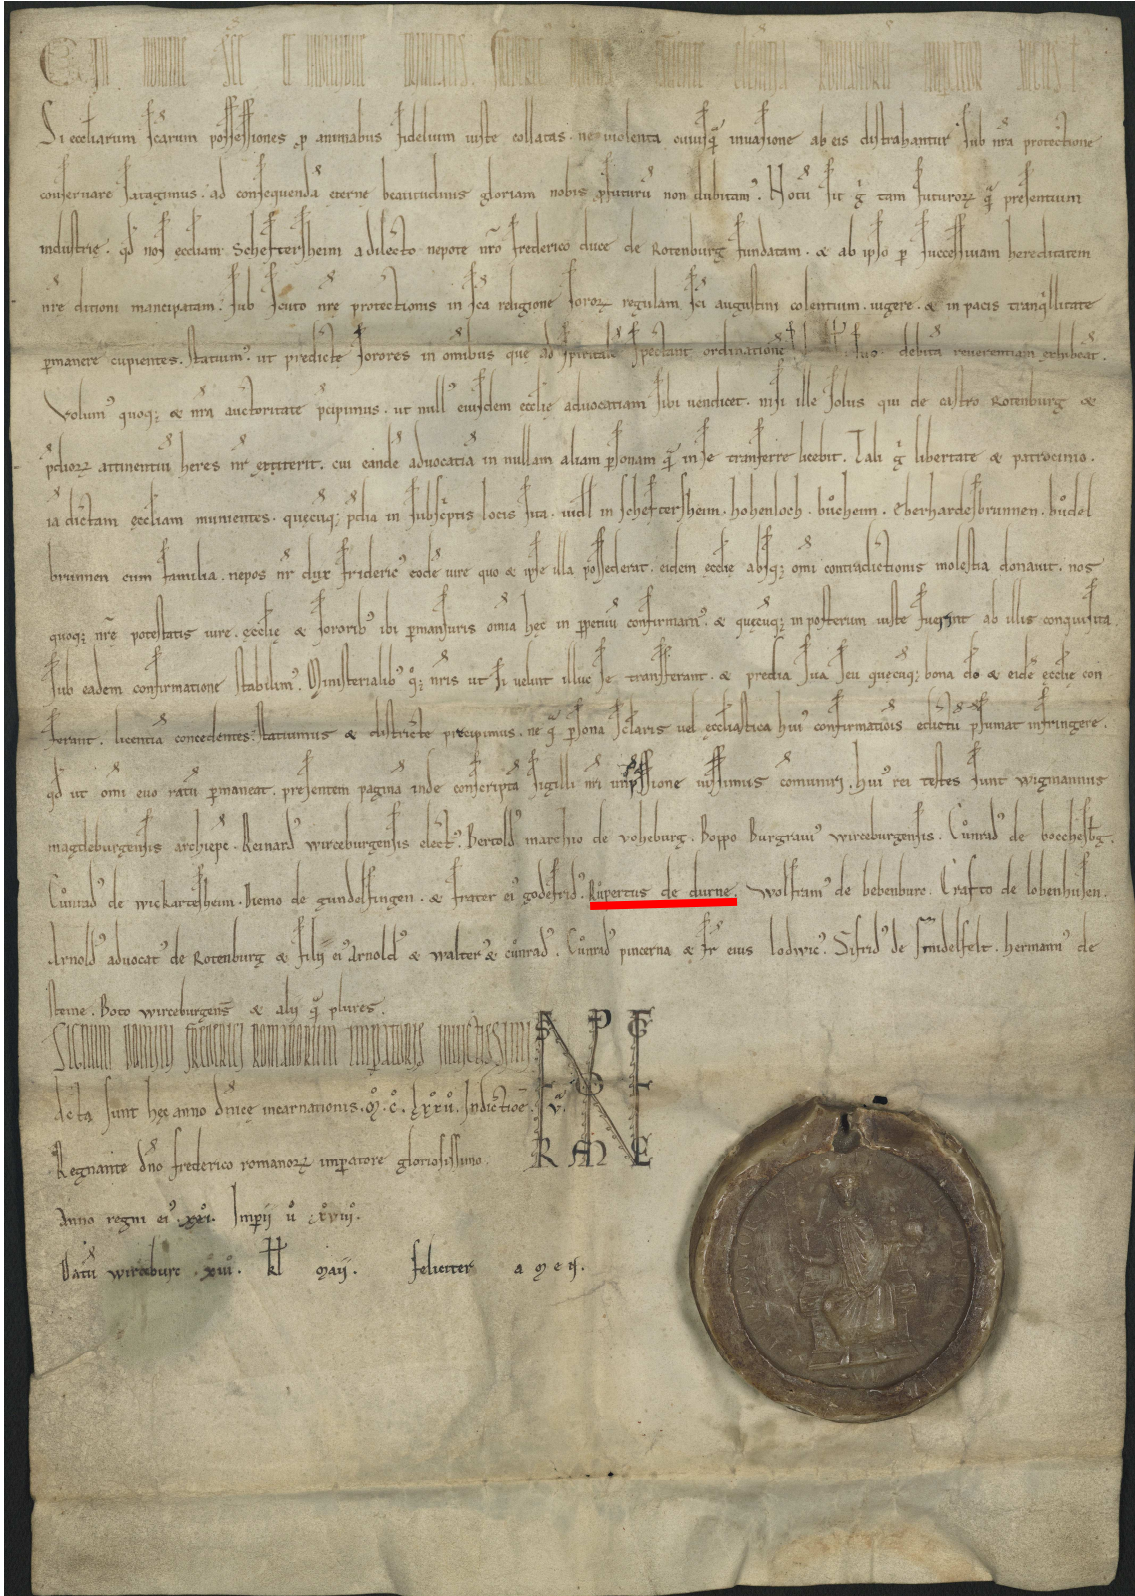 In nomine sce et individue trinitatis. Frideric divina favente clementia romanorum imperator
Si eccliarum scarum possessiones p animabus fidelium iuste collatas. ne violenta cuiusq̄ invasione ab eis distrahantur sub nr̄a protectione
conservare satagimus. ad consequendā eterne beatitudinis gloriam nobis pfuturū non dubitam᾽. Notū sit g̊ tam futuroꝝ q̄ presentium
industrie. qd̄ nos eccliam Scheftersheim a dilecto nepote nr̄o frederico duce de Rotenburg fundatam. & ab ipso p successivam hereditatem
nr̄e ditioni mancipatam. sub scuto nr̄e protectionis in sc̄a religione soroꝝ regulam sc̄i augustini colentium. vigere. & in pacis tranq̍llitate
pmanere cupientes. statuim᾽. ut predicte sorores in omībus que ad spiritalē spectant ordinationē suo debitā reverentiam exhibeāt.
Volum᾽ quoq; & nr̄a auctoritate p̄cipimus. ut null᾽ eiusdem ecclie advocatiam sibi vendicet. nisi ille solus qui de castro Rotenburg &
p̄dioꝝ attinentiū heres nr̄ extiterit. cui eandē advocatiā in nullam aliam psonam q̄ in se tranferre licebit. Tali g̊ libertate & patrocinio.
iā dictam eccliam munientes. quecūq; p̄dia in subsc̍ptis locis sita. vidl in scheftersheim. hohenloch. bůcheim. Eberhardesbrunnen. bůdel
brunnen cum familia. nepos nr̄ dux frideric᾽ eodē iure quo & ipse illa possederat. eidem ecclie absq; omī contradictionis molestia donavit. nos
quoq; nr̄e potestatis iure. ecclie & sororib᾽ ibi pmansuris omīa hec in ppetuū confirmam᾽. & quecūq; in posterum iuste fuerint ab illis conquisita.
sub eadem confirmatione stabilim᾽. Ministerialib᾽ q̊; nr̄is ut si velint illuc se transferant. & predia sua seu quecūq; bona do & eidē ecclie con
ferant. licentiā concedentes. Statuimus & districte precipimus. ne q̄ psona sclaris vel eccliastica hui᾽ confirmatiōis edictū p̄sumat infringere.
qd̄ ut omī evo ratū pmaneat. presentem paginā inde conscriptā sigilli nr̄i inpssione iussimus cōmuniri. hui᾽ rei testes sunt wigmannus
magdeburgensis archiepc̄. Reinard᾽ wirceburgensis elect᾽. Bertold᾽ marchio de voheburg. Boppo Burgravi᾽ wirceburgensis. Cůnrad᾽ de bocchesbg.
Cůnrad᾽ de wickartesheim. Diemo de gundolfingen. & frater ei᾽ godefrid᾽. Růpertus de durne. Wolfram᾽ de bebenburc. Crafto de lobenhusen.
Arnold᾽ advocat᾽ de Rotenburg & filii ei᾽ Arnold᾽ & walter᾽ & cůnrad᾽. Cůnrad᾽ pincerna & fr̄ eius lodwic᾽. Sifrid᾽ de hermann᾽ de
steine. Boto wirceburgens̄ & alii q̄ plures.
Signum domini frederici romanorum imperatoris invictissimi
Acta sunt hec anno dn̄ice incarnationis. M̊. C̊. lxxii. Indictioē. v.
Regnante dn̄o frederico romanoꝝ imperatore gloriosissimo.
Anno regni ei᾽. xxi. Imperii ů xviii.
Datū wirceburc. xiii. kl maii. feliciter amen.